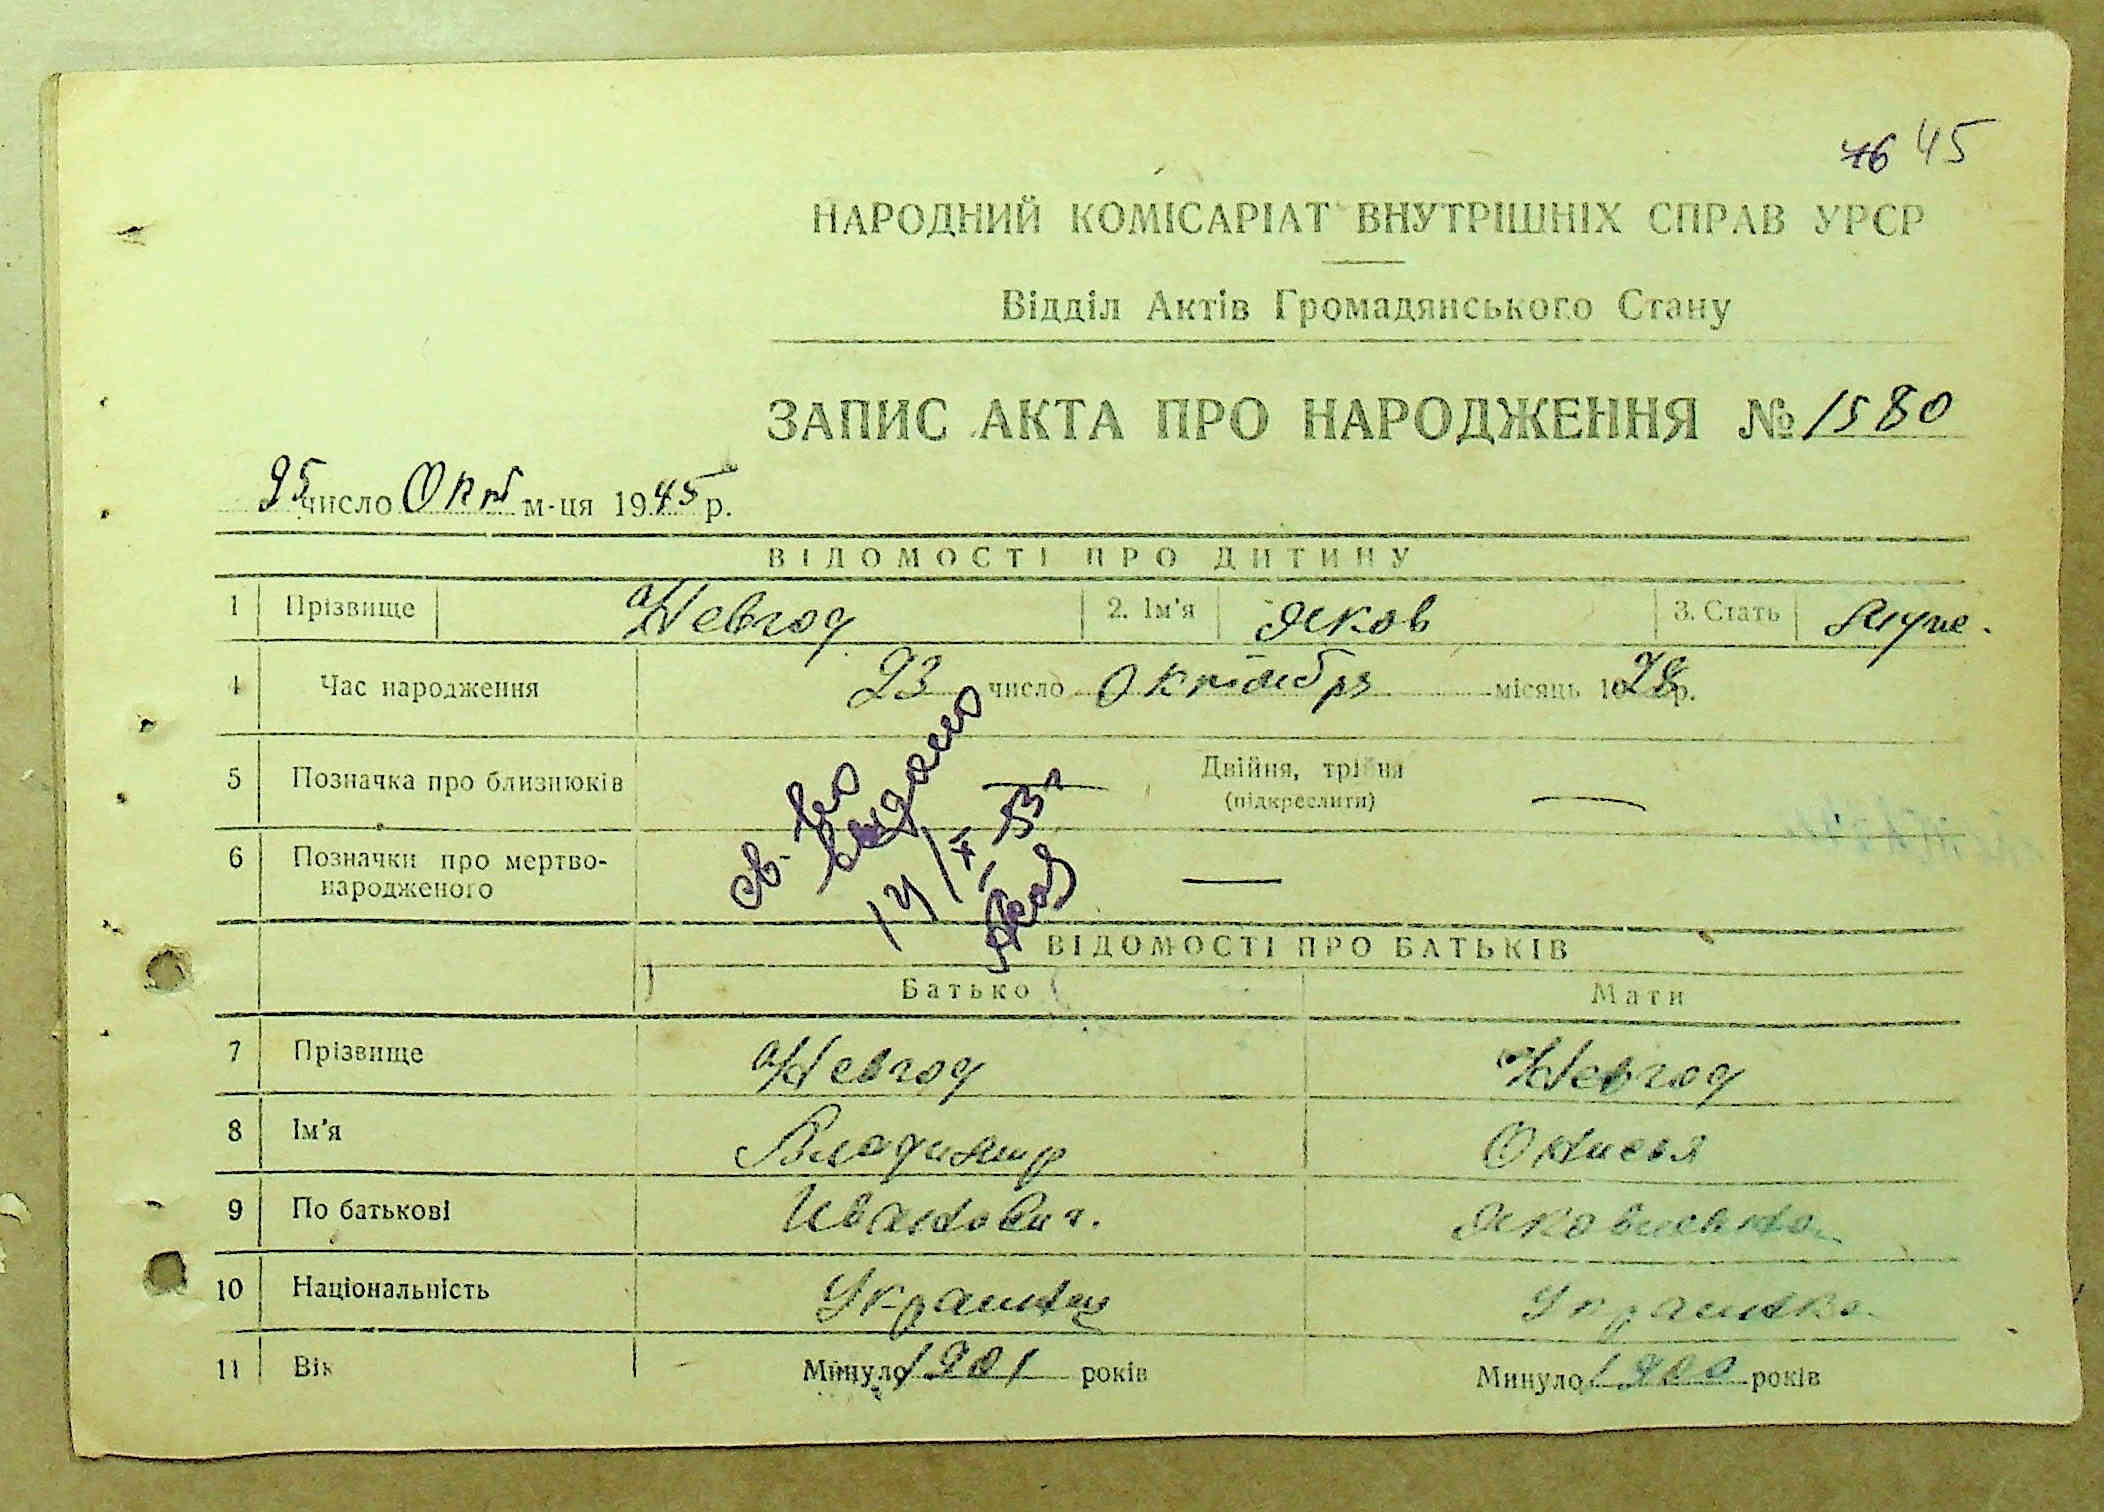 45
НАРОДНИЙ КОМІСАРІАТ ВНУТРІШНІХ СПРАВ УРСР
Відділ Актів Громадянського Стану
ЗАПИС АКТА ПРО НАРОДЖЕННЯ № 1580
25 число Окт м-ця 1945 р.
ВІДОМОСТІ ПРО ДИТИНУ
1 Прізвище Невгод 2. Ім'я Яков 3. Стать муж.
4 Час народження 23 число октября місяць 1928 р.
5 Позначка про близнюків Двійня, трійня
(підкреслити)
6 Позначки про мертво-
народженого
св-во
видано
14/XI-53 г
ВІДОМОСТІ ПРО БАТЬКІВ
Батько Мати
7 Прізвище Невгод Невгод
8 Ім'я Владимир Онисья
9 По батькові Иванович. Яковлевна
10 Національність Украинец Украинка
11 Вік Минуло 1901 років Минуло 1900 років